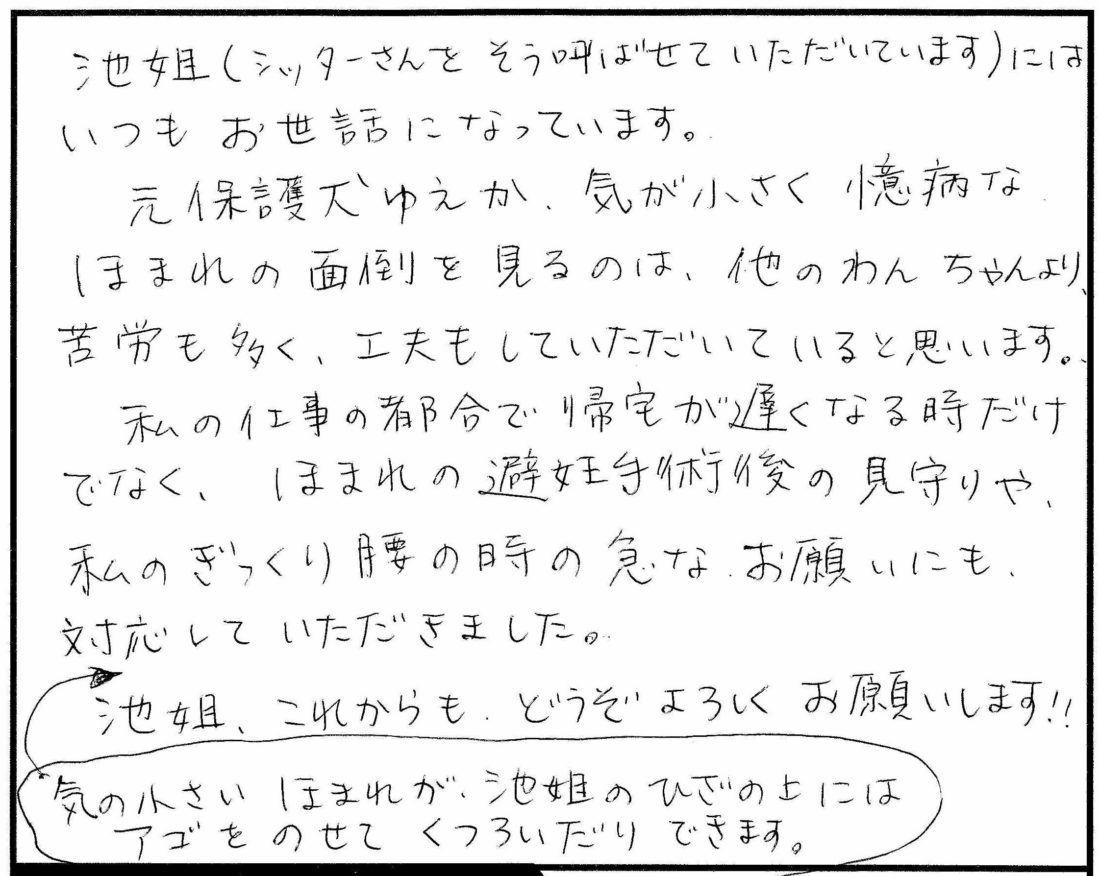 池姐(シッターさんを そう呼ばせていただいています)には
いつも お世話になっています。
元保護犬ゆえか、気が小さく 憶病な
ほまれの 面倒を 見るのは、他のわんちゃんより、
苦労も多く、工夫もしていただいていると思います。
私の仕事の都合で 帰宅が遅くなる時だけ
でなく、ほまれの避妊手術後の見守りや、
私のぎっくり腰の時の 急な お願いにも、
対応していただきました。
池姐、これからも どうぞよろしく お願いします!!
気の小さい ほまれが、池姐のひざの上には
アゴをのせて くつろいだり できます。